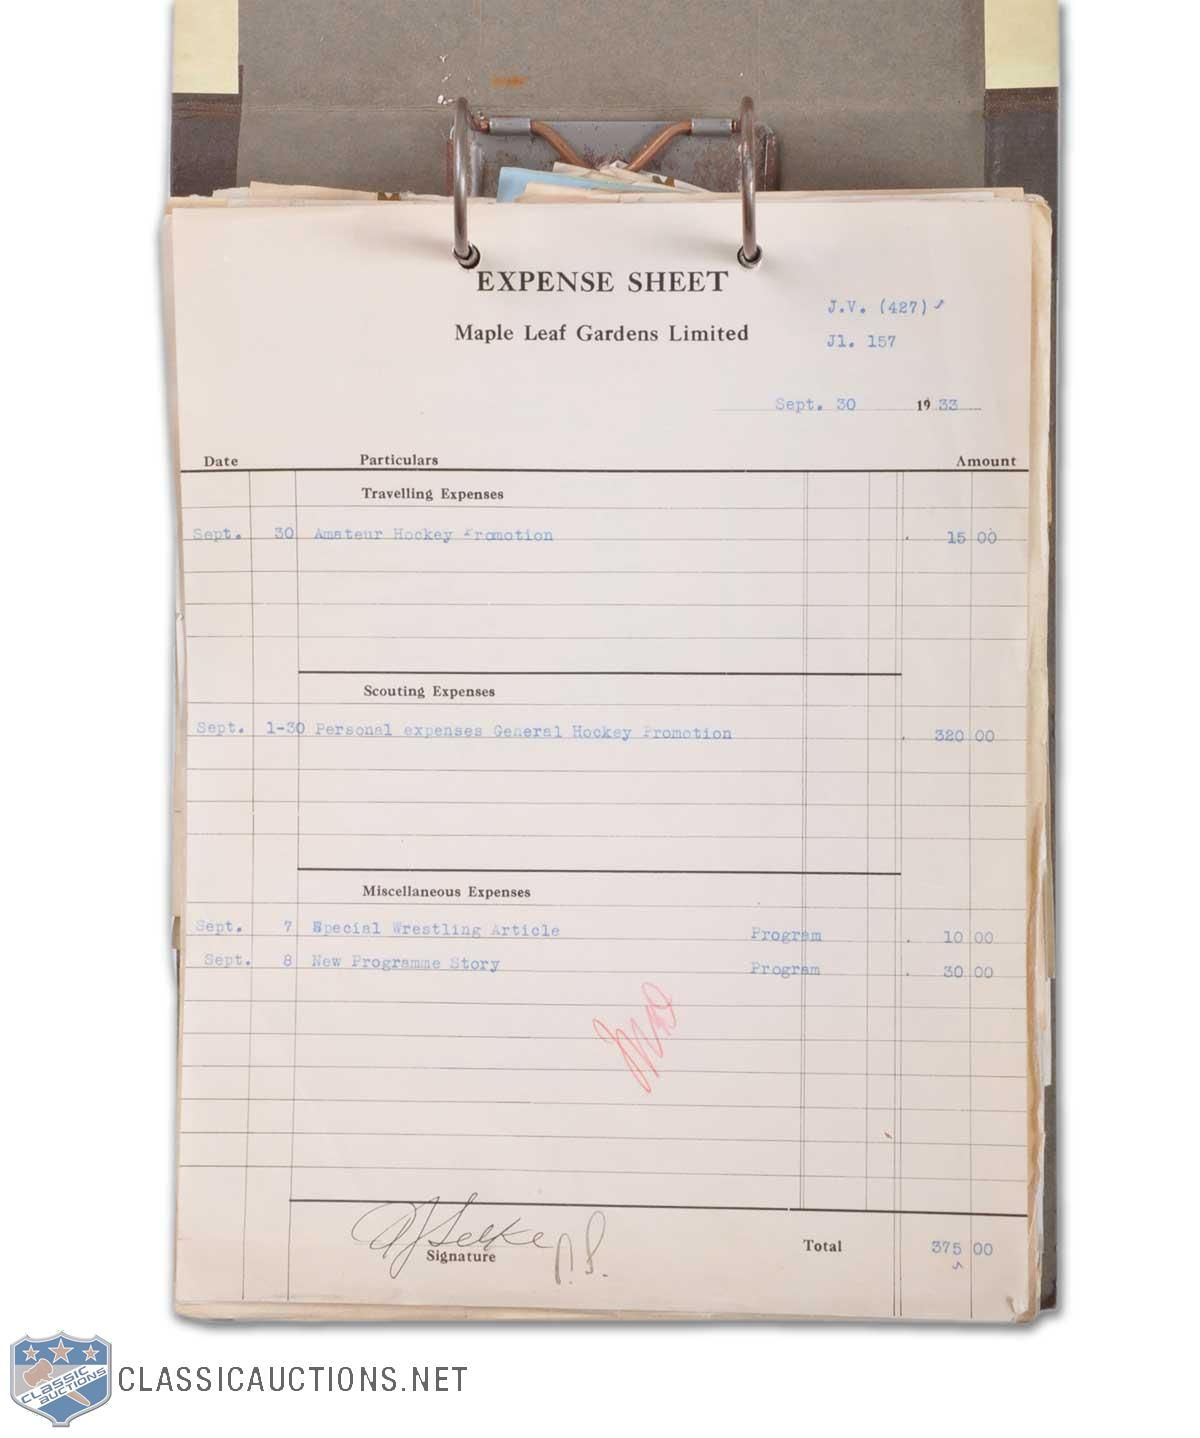 EXPENSE SHEET
J.V. (427)
Maple Leaf Gardens Limited
J1. 157
Sept. 30 1933
Date Particulars Amount
Travelling Expenses
Sept. 30 Amateur Hockey Promotion 15 00
Scouting Expenses
Sept. 1-30 Personal expenses General Hockey Promotion 320 00
Miscellaneous Expenses
Sept. 7 Special Wrestling Article Program 10 00
Sept. 8 New Programme Story Program 30 00
Selke
Signature
Total 375 00
CLASSIC AUCTIONS
CLASSICAUCTIONS.NET